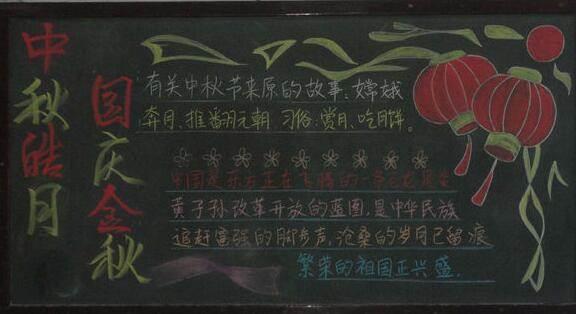 中秋皓月
国庆金秋
有关中秋节来原的故事:嫦娥
奔月、推翻元朝 习俗:赏月、吃月饼。
中国是东方正在飞腾的一条巨龙
黄子孙改革开放的蓝图,是中华民族
追赶富强的脚步声,沧桑的岁月已留痕
繁荣的祖国正兴盛.